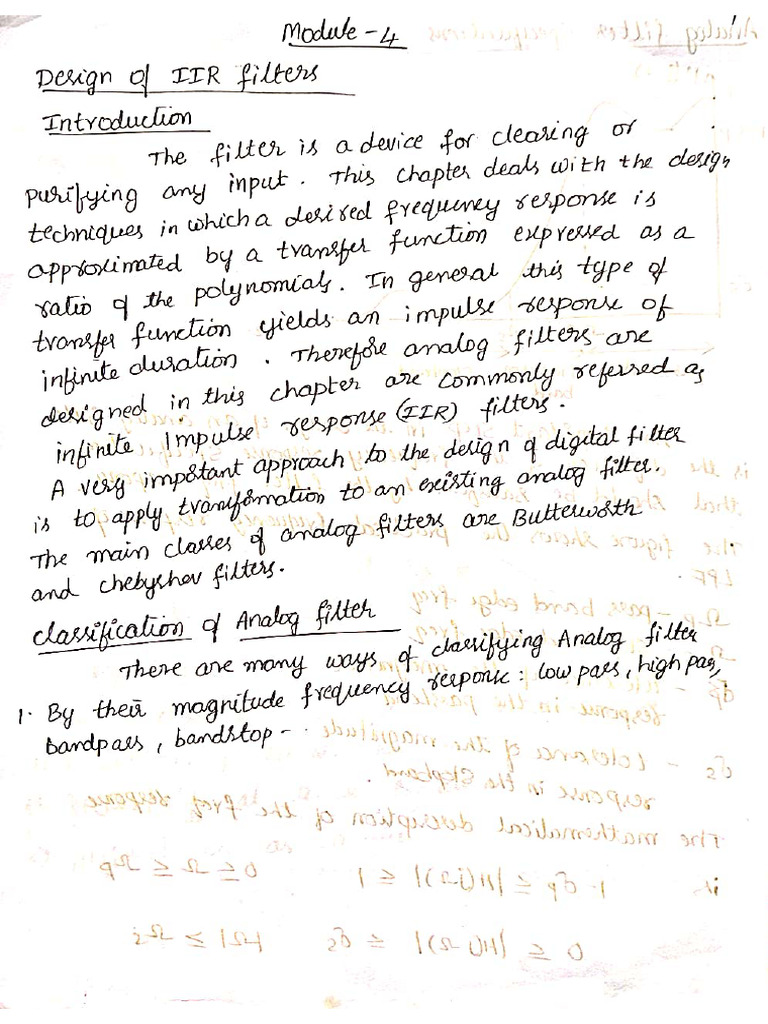 Module-4
Design of IIR filters
Introduction
The filter is a device for clearing or
purifying any input. This chapter deals with the design
techniques in which a desired frequency response is
approximated by a transfer function expressed as a
ratio of the polynomials. In general this type of
transfer function yields an impulse response of
infinite duration. Therefore analog filters are
designed in this chapter are commonly referred as
infinite Impulse response (IIR) filters.
A very important approach to the design of digital filter
is to apply transformation to an existing analog filter.
The main classes of analog filters are Butterworth
and chebyshev filters.
classification of Analog filter
There are many ways of classifying Analog filter
1. By their magnitude frequency response: low pass, high pass,
bandpass, bandstop--